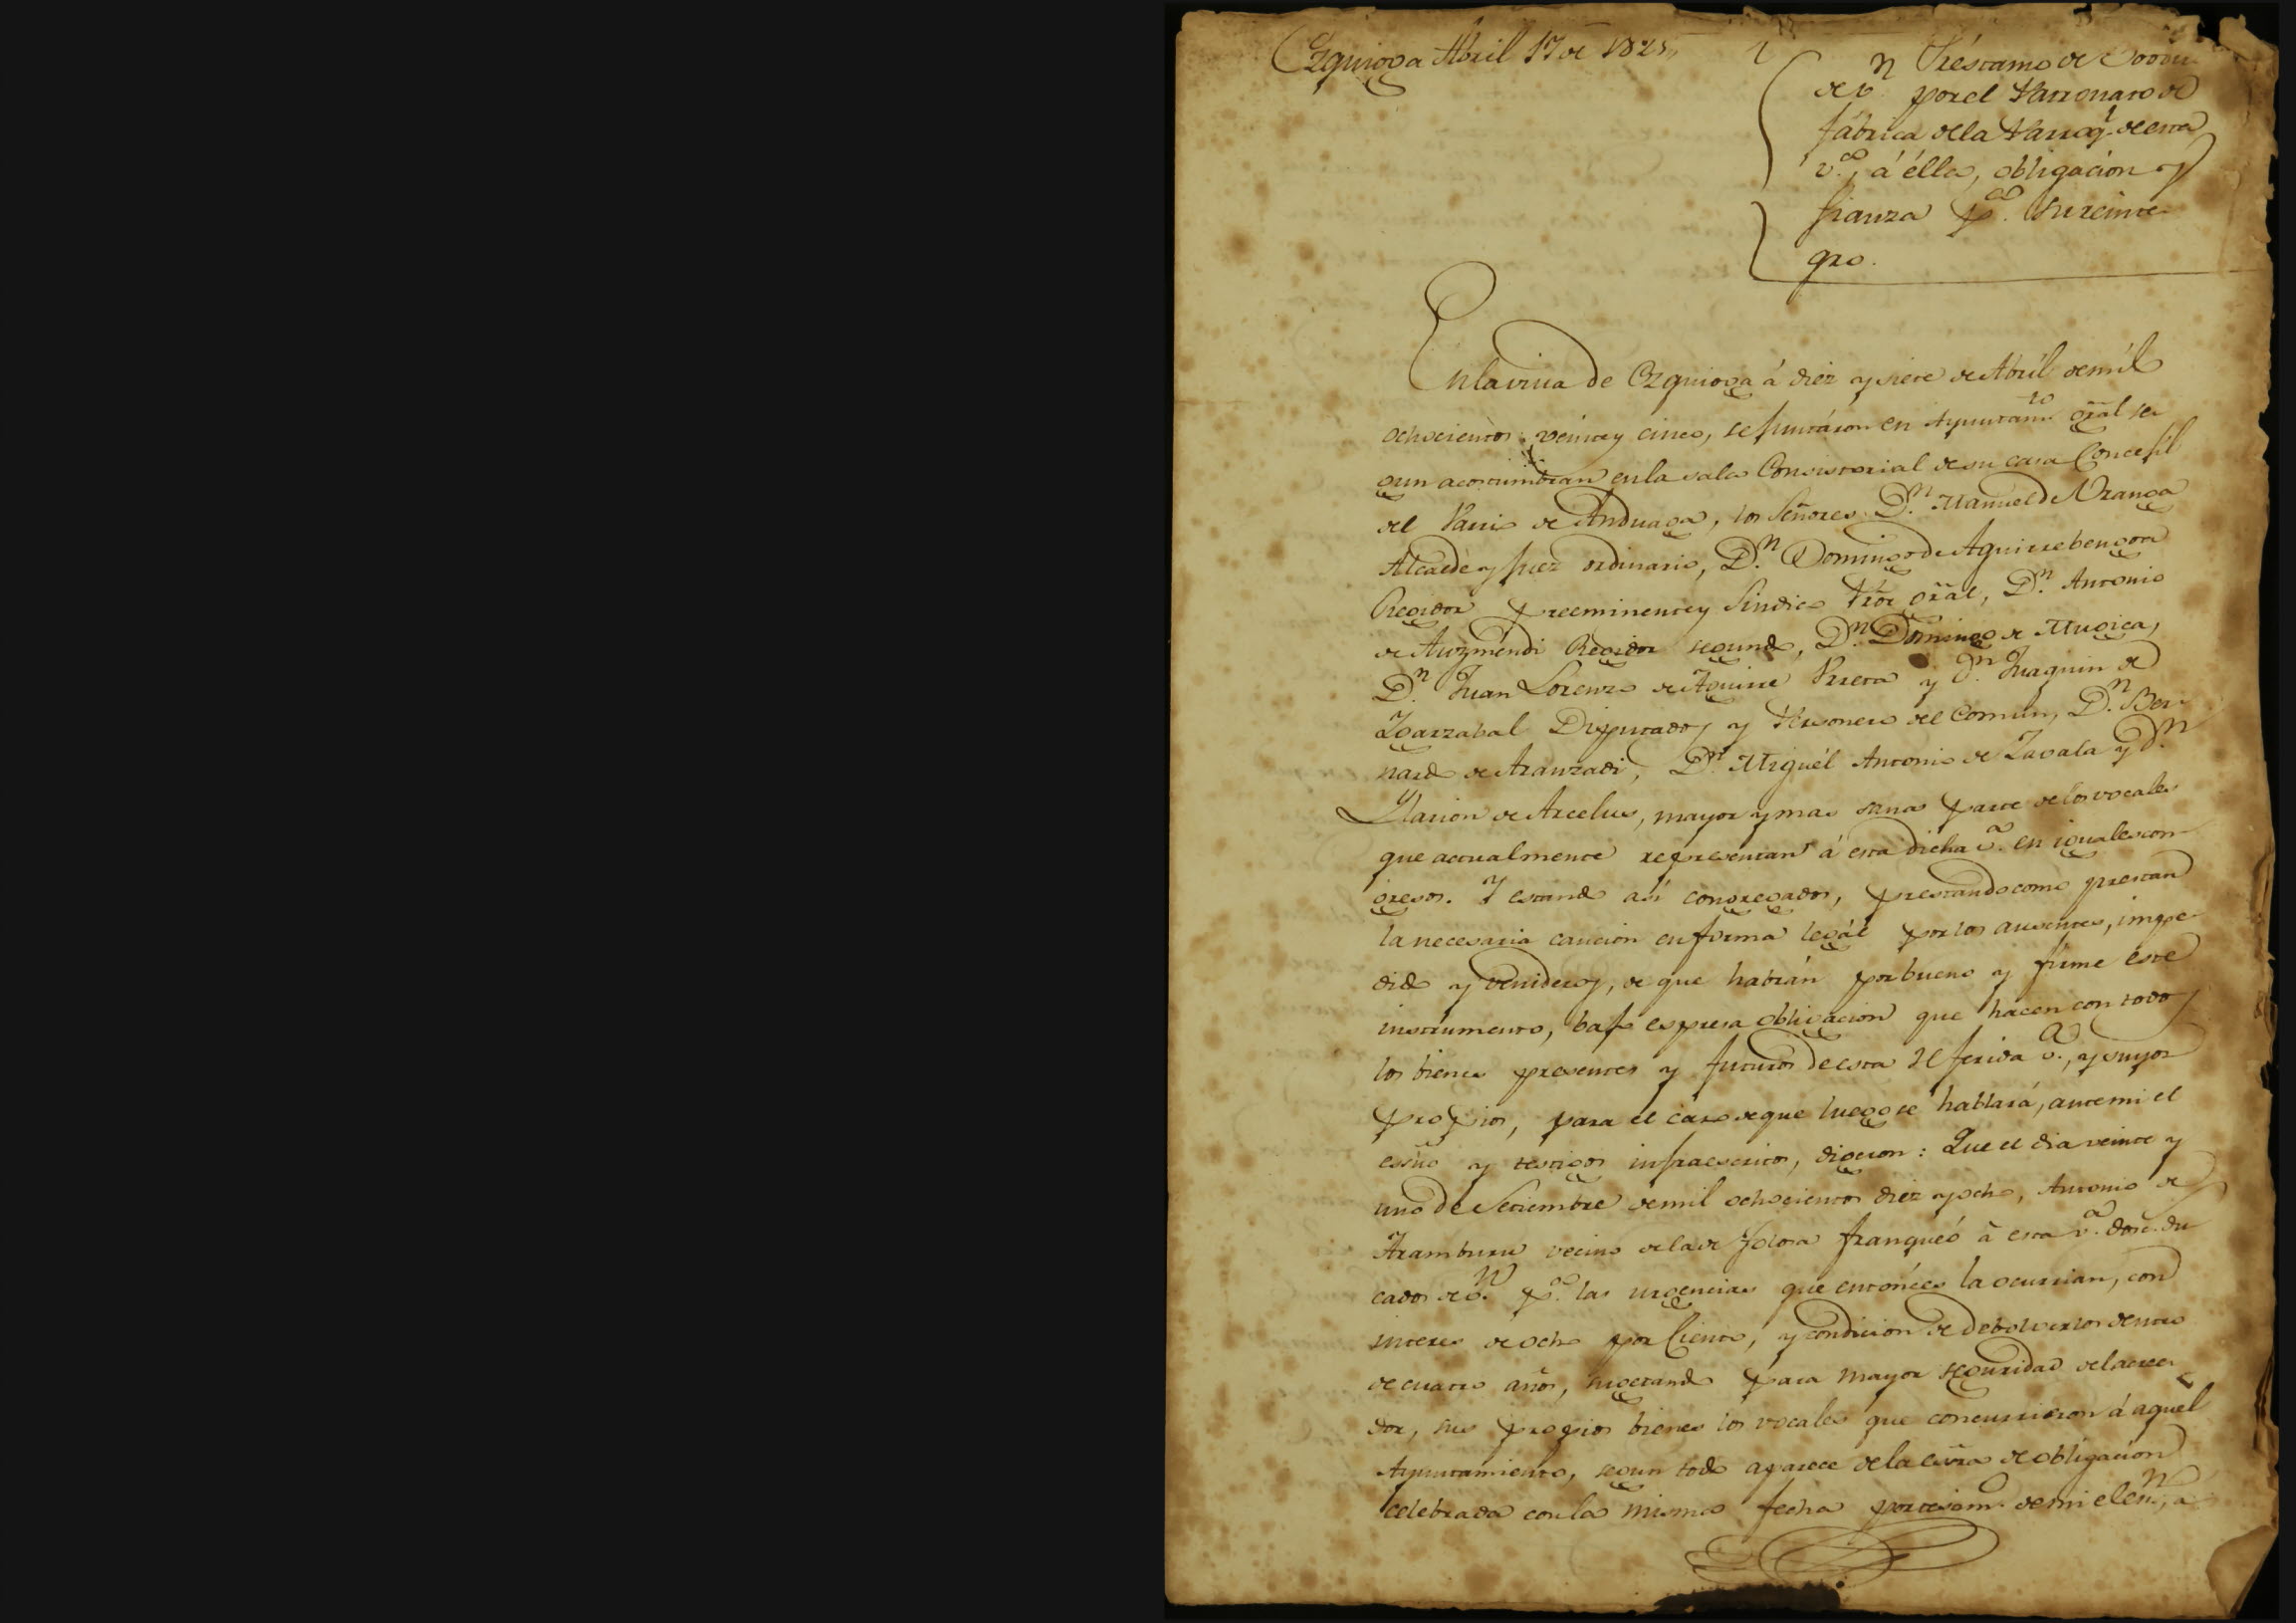 Ezquioga Abril 17 de 1825,
Préstamo de
de v.n por el Patronato de
fábrica de la Parroq.l de esta
v.a, á élla, obligacion y
fianza p.a su reinte-
gro.
En la villa de Ezquioga á diez y siete de Abríl de míl
ochocientos veinte y cinco, se juntáron en Ayuntam.to gral se-
gun acostumbran en la sala Consistorial de su casa Concejíl
del Varrio de Anduaga, los Señores D.n Manuel de Uranga
Alcalde y Juez ordinario, D.n Domingo de Aguirrebengoa
Regidor preeminente y Sindico Pror gral, D.n Antonio
de Auzmendi Regidor segundo, D.n Domingo de Mugica,
D.n Juan Lorenzo de Aguirre Urreta y D.n Juaquin de
Igarzabal Diputados y Personero del Comun, D.n Ber-
nardo de Aranzadi, D.n Miguél Antonio de Zavala y D.n
Ylarion de Arcelus, mayor y mas sana parte de los vocales
que actualmente representan á esta dicha v.a en iguales con-
gresos. Y estando así congregados, prestando como prestan
la necesaria caucion en forma legál por los ausentes, impe-
didos y venideros, de que habrán por bueno y firme este
instrumento, bajo espresa obligacion que hacen con todos
los bienes presentes y futuros de esta referida v.a, y suyos
propios, para el caso de que luego se hablará, ante mi el
esño y testigos infraescritos, digeron: Que el dia veinte y
uno de Setiembre de mil ochocientos diez y ocho, Antonio de
Aramburu vecino de la de Tolosa franqueó á esta v.a dosc. du-
cados de v.n p.a las urgencias que entónces la ocurrian, con
interes de ocho por Ciento, y condicion de debolverlos dentro
de cuatro años, sugetando para mayor seguridad del acree-
dor, sus propios bienes los vocales que concurrieron á aquel
Ayuntamiento, segun todo aparece de la esvra de obligacion
celebrada con la misma fecha por testim.o de mi el esn.o, a